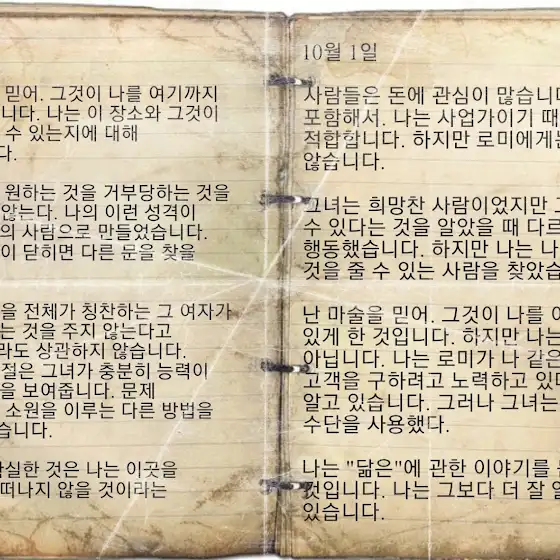 믿어. 그것이 나를 여기까지
니다. 나는 이 장소와 그것이
수 있는지에 대해
다.
원하는 것을 거부당하는 것을
않는다. 나의 이런 성격이
의 사람으로 만들었습니다.
이 닫히면 다른 문을 찾을
을 전체가 칭찬하는 그 여자가
는 것을 주지 않는다고
라도 상관하지 않습니다.
절은 그녀가 충분히 능력이
을 보여줍니다. 문제
소원을 이루는 다른 방법을
습니다.
확실한 것은 나는 이곳을
떠나지 않을 것이라는
10월 1일
사람들은 돈에 관심이 많습니다
포함해서. 나는 사업가이기 때
적합합니다. 하지만 로미에게는
않습니다.
그녀는 희망찬 사람이었지만
수 있다는 것을 알았을 때 다르
행동했습니다. 하지만 나는 나
것을 줄 수 있는 사람을 찾았습
난 마술을 믿어. 그것이 나를
있게 한 것입니다. 하지만 나는
아닙니다. 나는 로미가 나 같은
고객을 구하려고 노력하고 있
알고 있습니다. 그러나 그녀는
수단을 사용했다.
나는 "닮은"에 관한 이야기를
것입니다. 나는 그보다 더 잘
있습니다.